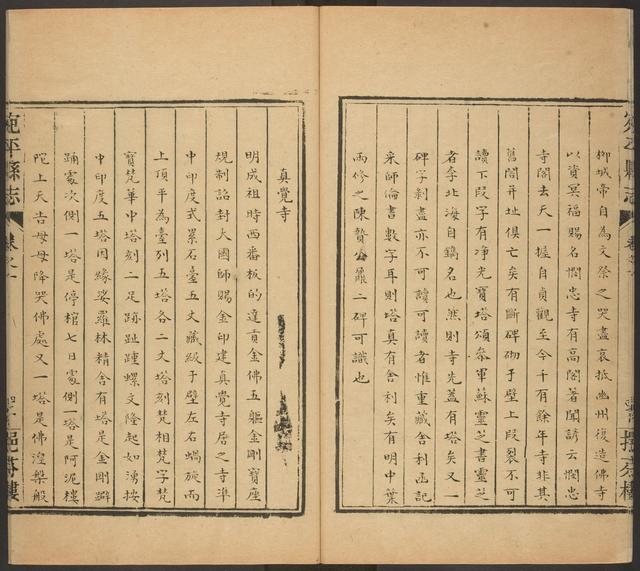 柳城帝自為文祭之哭盡哀抵幽州復造佛寺
以資冥福賜名憫忠寺有高閣著聞諺云憫忠
寺閣去天一握自貞觀至今千有餘年寺非其
舊閣并址俱亡矣有斷碑砌于壁上段裂不可
讀下段字有淨光寶塔頌叅軍蘇靈芝書靈芝
者李北海自鐫名也然則寺先蓋有塔矣又一
碑字剝盡亦不可讀可讀者惟重藏舍利函記
采師倫書數字耳則塔真有舍利矣有明中葉
兩修之陳贊二碑可識也
真覺寺
明成祖時西番板的達貢金佛五軀金剛寶座
規制詔封大國師賜金印建真覺寺居之寺準
中印度式累石臺五丈藏級于壁左右蝸旋而
上頂平為臺列五塔各二丈塔刻梵相梵字梵
寶梵華中塔刻二足跡趾踵螺文隆起如湧按
中印度五塔因緣娑羅林精舍有塔是金剛躃
踊處次側一塔是停棺七日處側一塔是阿泥樓
陀上天告母母降哭佛處又一塔是佛涅槃般
宛平縣志
卷之一